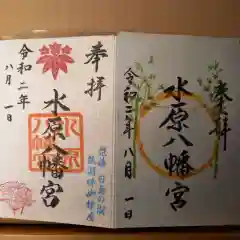 奉拝
水原八幡宮
令和二年
八月一日
奉拝
水原八幡宮
令和二年八月一日